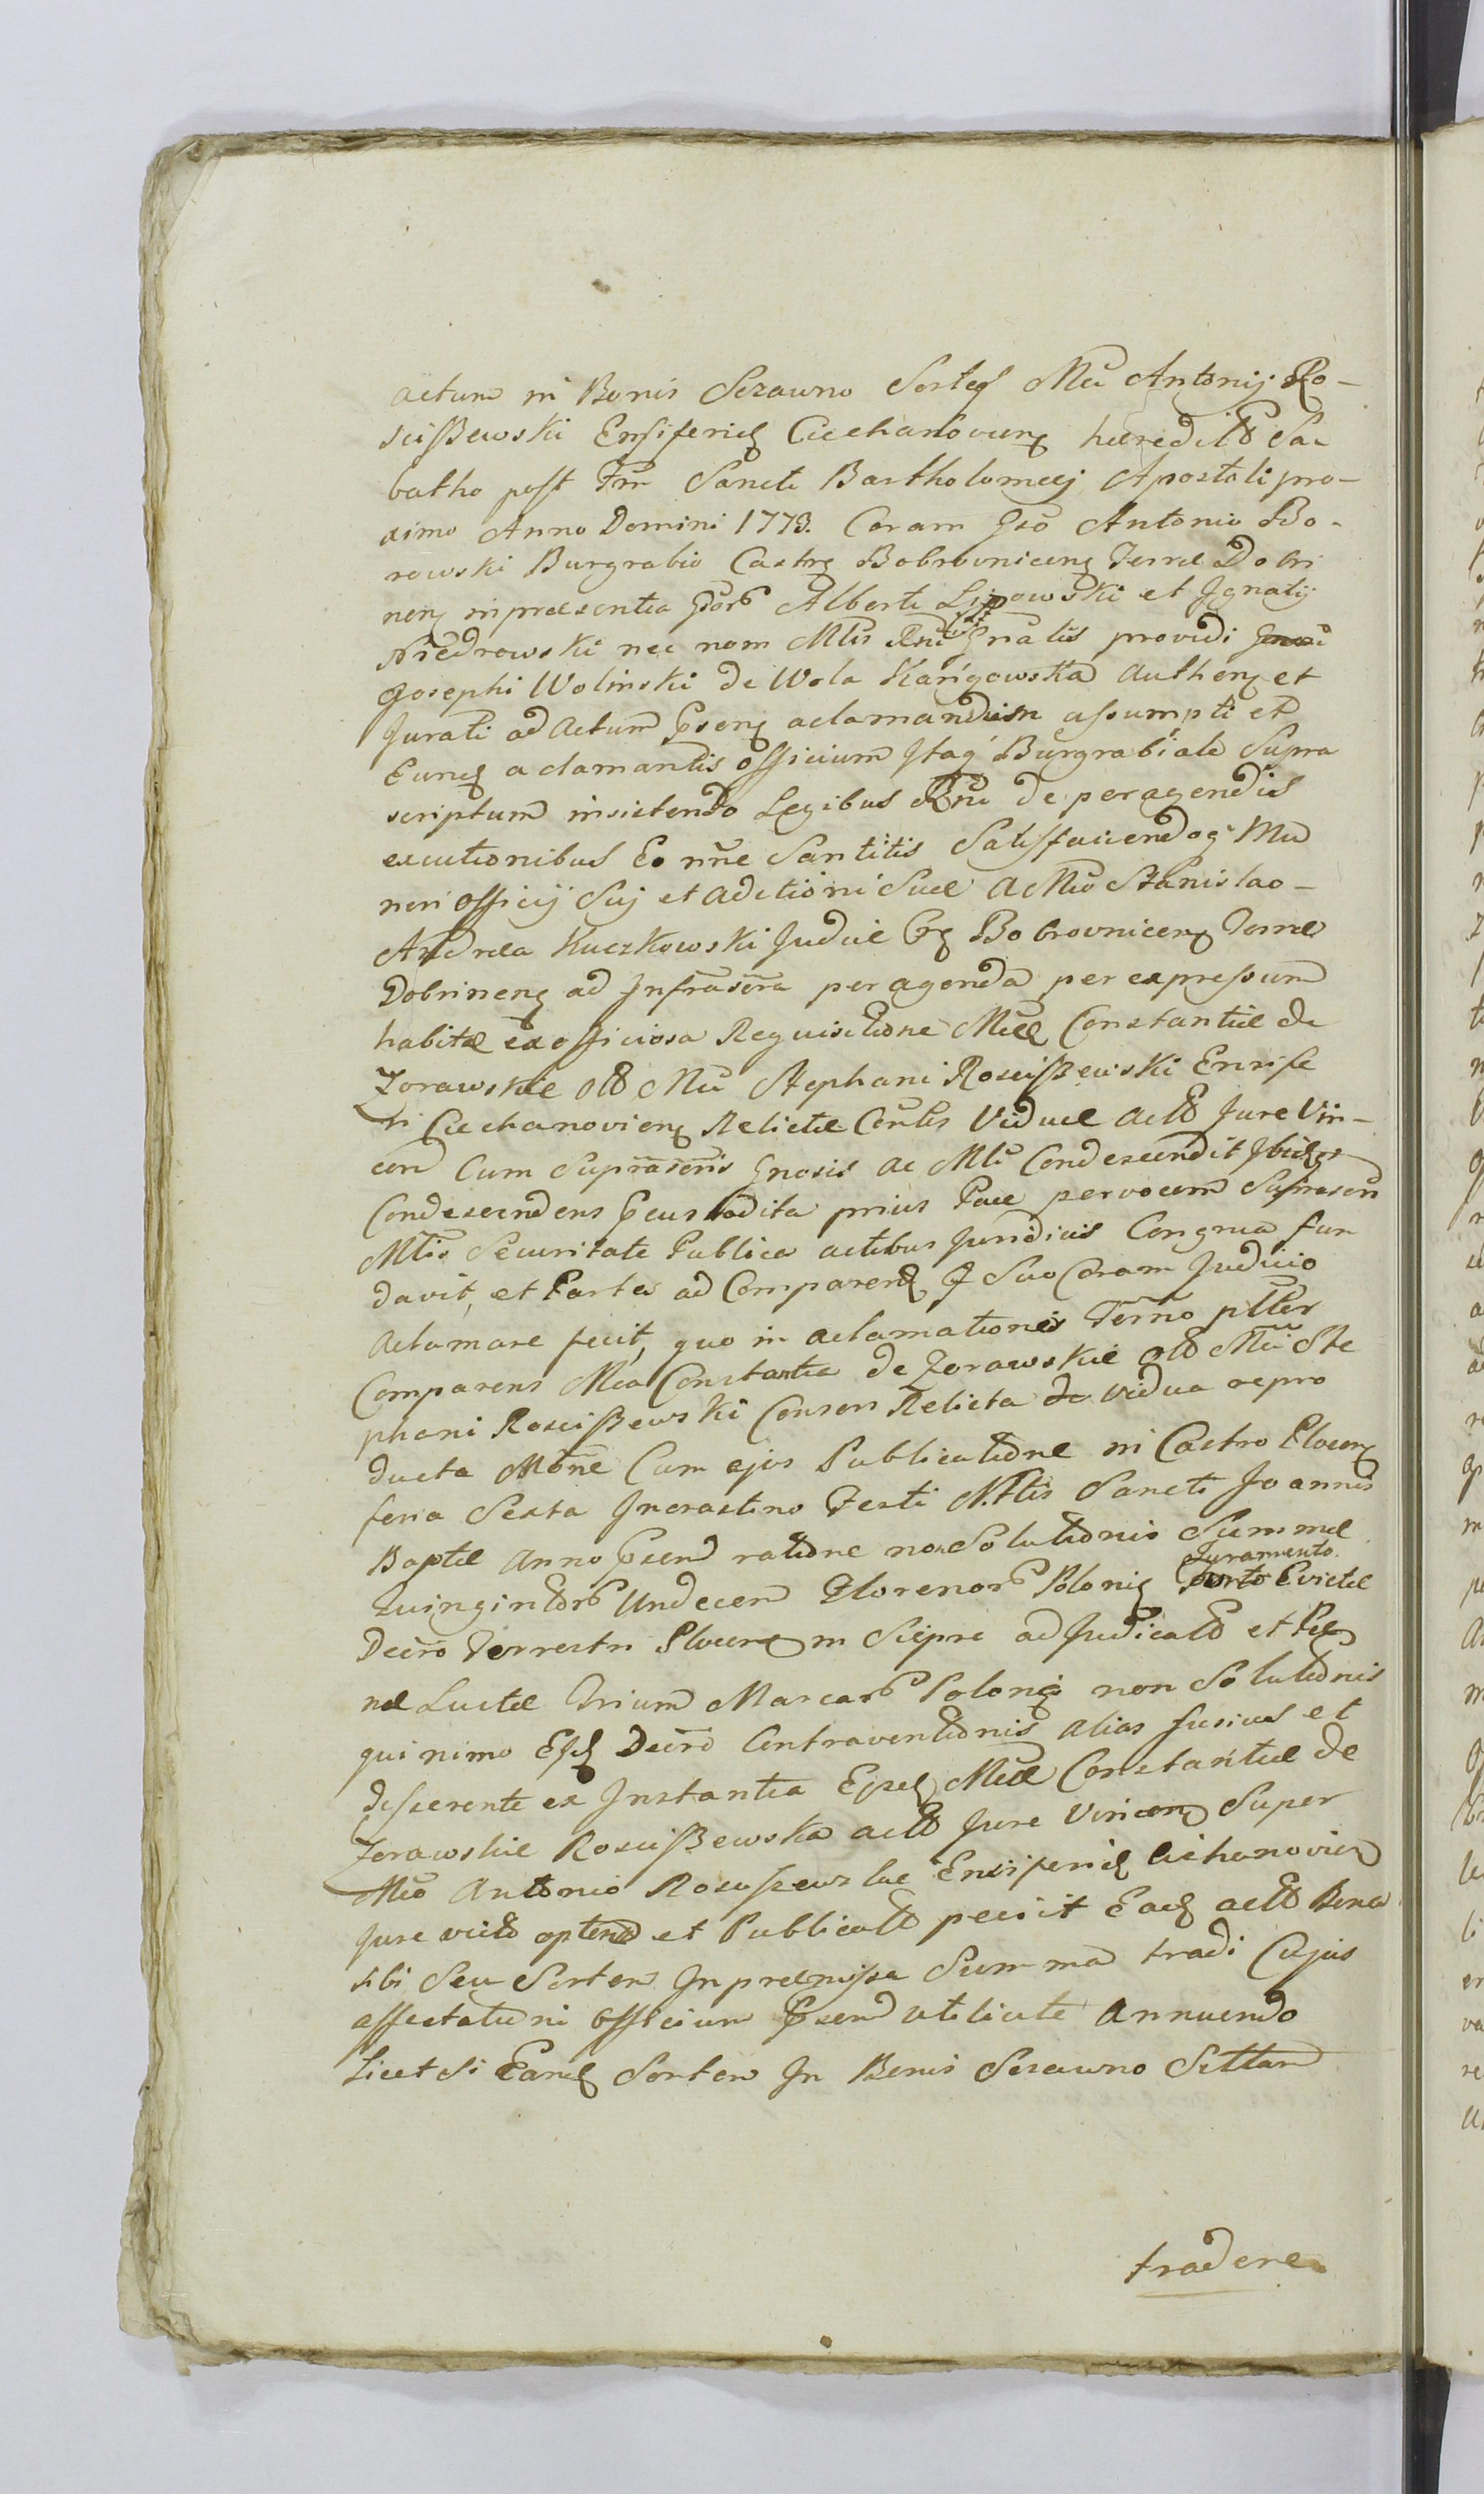 actum in Bonis Sczawno Sortes Mci Antonij Ro-
scißewski Ensiferidꝫ Ciechanoviens hæredit Sa
batho post Fm Sancti Bartholomæj Apostoli pro-
ximo Anno Domini 1773. Coram Gso Antonio Bo-
rowski Burgrabio Castrꝫ Bobrovnicenꝫ Terræ Dobri
nenꝫ in præsentia Alberti Lipowski et Ignatij
Niedrowski nec nom Mtis Rni Gnalis providi
Josephi Wolinski de Wola Kanigowska Authenꝫ et
Jurati ad Actum Psenꝫ aclamandum assumpti et
Eundꝫ aclamantis officium Itaq Burgrabiale Supra
scriptum insistendo Legibus Rni de peragendis
executionibus Eo nne Santitis Satisfaciendoq Mu
neri Officij Suj et adctioni Suæ a Mco Stanislao-
Andrea Kuczkowski Judice Crꝫ Bobrovnicenꝫ Terræ
Dobrinenꝫ ad Infrascra peragenda per expressum
habitæ ex officiosa Requisitione Mcæ Constantiæ de
Zorawskie Mci Stephani Roscißewski Ensife
ri Ciechanovienꝫ Relictæ Contis Viduæ act Jure Vin-
cen Cum Suprascris Gnosis ac Mti Condescendit Ibidꝫ
Condescendens Pcustodita prius Pace per vocem Suprascri
Mtis Securitate Publica actibus Juridicis Congrua fun
davit, et Partes ad Comparend Suo Coram Judicio
Aclamare fecit, quo in aclamationis Termo pltter
Comparens Mca Constantia de Zorawskie Mci Ste
phani Roscißewski Consors Relicta vidua repro
ducta Mone Cum ejus Publicatione in Castro Plocenꝫ
feria Sexta Incrastino Festi Nttis Sancti Joannis
Baptæ Anno Psend ratione non Solutionis Summæ
Quingintor Undecem Florenor Polonis Juramento Evictæ
Decro Terrestri Plocens in Sieprc adjudicat et Pœ
næ Luctæ Trium Marcar Polonis non Solutionis
qui nimo Decro Contraventionis alias fusius et
disserente ex Instantia Ejsdꝫ Mcæ Constantiæ de
Zorawskie Roscißewska act Jure Vincenꝫ Super
Mco Antonio Ensiferidꝫ Cichanovien
Jure victo optend et Publicat peciit Eadꝫ act Bona
sibi Seu Sortem In præmissa Summa tradi Cujus
affectationi Officium Psend utiliate Annuendo
Licet Si Eandꝫ Sortem In Bonis Sczawno Sittam
tradere